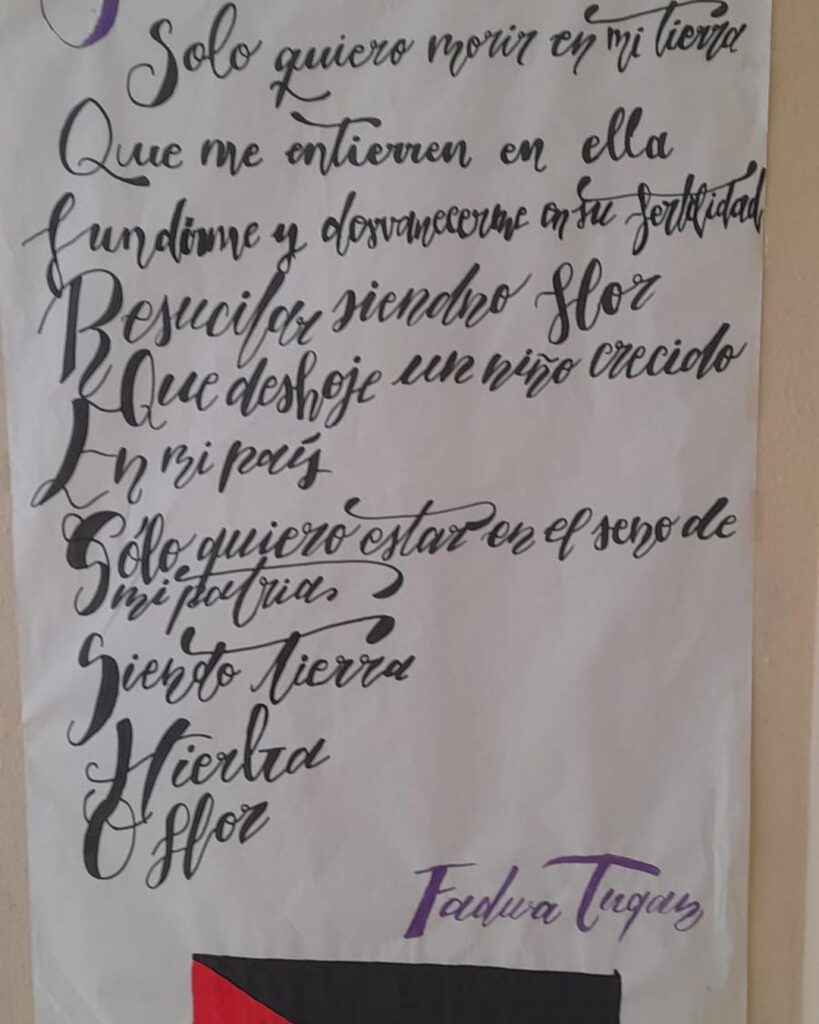 Solo quiero morir en mi tierra
Que me entierren en ella
fundirme y desvanecerme en su fertilidad
Resucitar siendno flor
Que deshoje un niño crecido
En mi país
Sólo quiero estar en el seno de
mi patria.
Siendo tierra
Hierba
O flor
Fadwa Tuqan